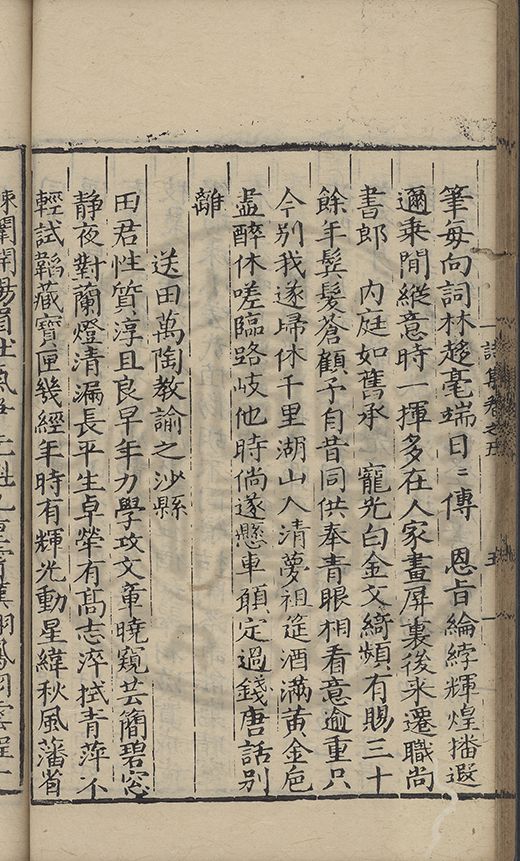 詩集卷之五 五
筆每向詞林趍毫端日〻傳 恩旨綸綍輝煌播遐
邇乘閒縱意時一揮多在人家畫屏裏後来遷職尚
書郎 内庭如舊承 寵光白金文綺頻有賜三十
餘年髩髮蒼顧予自昔同供奉青眼相看意逾重只
今别我遂歸休千里湖山入清夢祖筵酒滿黄金巵
盡醉休嗟臨路歧他時尚遂懸車願定過錢唐話别
離
送田萬陶教諭之沙縣
田君性質淳且良早年力學攻文章曉窺芸簡碧窓
静夜對蘭燈清漏長平生卓犖有髙志淬拭青萍不
輕試韜藏寳匣幾經年時有輝光動星緯秋風藩省